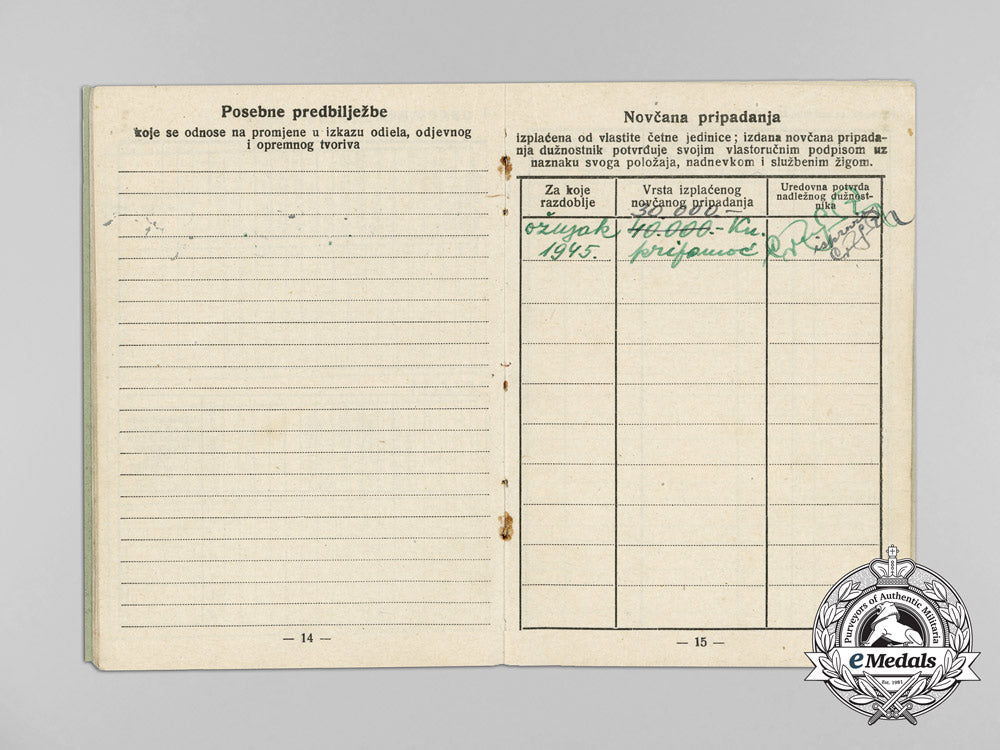 Posebne predbilježbe
koje se odnose na promjene u izkazu odiela, odjevnog
i opremnog tvoriva
— 14 —
Novčana pripadanja
izplaćena od vlastite četne jedinice; izdana novčana pripada-
nja dužnostnik potvrđuje svojim vlastoručnim podpisom uz
naznaku svoga položaja, nadnevkom i službenim žigom.
Za koje
razdoblje
Vrsta izplaćenog
novčanog pripadanja
Uredovna potvrda
nadležnog dužnost-
nika
30.000.—
ožujak
1945.
40.000.- Kn.
pripomoć
— 15 —
Purveyors of Authentic Militaria
eMedals
Est. 1981